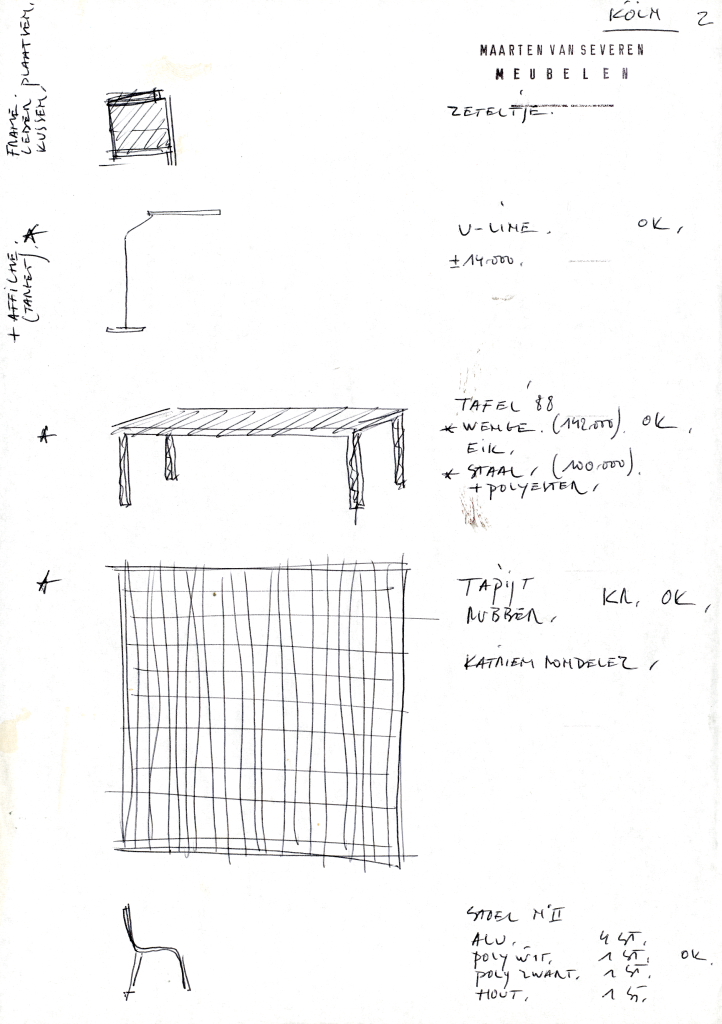 KÖLN 2
MAARTEN VAN SEVEREN
MEUBELEN
FRAME.
LEDER, PLAATVEM,
KUSSEM,
ZETELTJE.
+ AFFICHE.
(TARGET).
U-LINE. OK,
± 14.000,
TAFEL '88
* WENGE. (142.000). OK,
EIK,
* STAAL, (100.000).
+ POLYESTER,
TAPIJT
RUBBER, KR. OK,
KATRIEN RONDELEZ,
STOEL N°II
ALU, 4 ST,
POLY WIT, 1 ST, OK.
POLY ZWART, 1 ST,
HOUT, 1 ST,